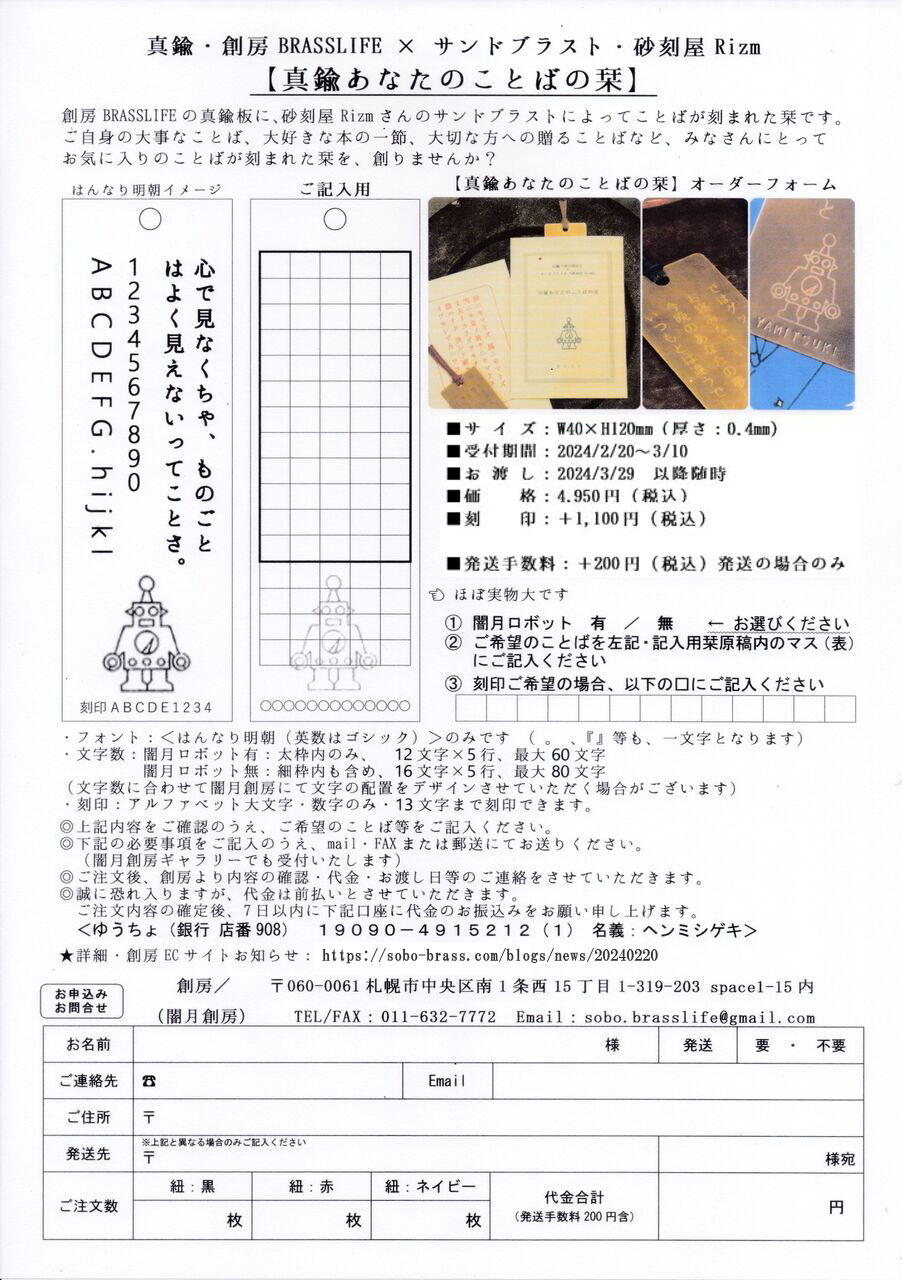 真鍮・創房 BRASSLIFE × サンドブラスト・砂刻屋 Rizm
【真鍮あなたのことばの栞】
創房 BRASSLIFE の真鍮板に、砂刻屋 Rizm さんのサンドブラストによってことばが刻まれた栞です。
ご自身の大事なことば、大好きな本の一節、大切な方への贈ることばなど、みなさんにとって
お気に入りのことばが刻まれた栞を、創りませんか？
はんなり明朝イメージ
心で見なくちゃ、ものごと
はよく見えないってことさ。
1234567890
ABCDEFG.hijkl
刻印ABCDE1234
ご記入用
○○○○○○○○○○○○○
【真鍮あなたのことばの栞】オーダーフォーム
真鍮あなたのことばの栞
YAMITSUKI
■サイズ：W40×H120mm（厚さ：0.4mm）
■受付期間：2024/2/20～3/10
■お渡し：2024/3/29　以降随時
■価　　格：4.950円（税込）
■刻　　印：＋1,100円（税込）
■発送手数料：＋200円（税込）発送の場合のみ
☜ ほぼ実物大です
① 闇月ロボット　有　／　無　　← お選びください
② ご希望のことばを左記・記入用栞原稿内のマス（表）
にご記入ください
③ 刻印ご希望の場合、以下の□にご記入ください
・フォント：＜はんなり明朝（英数はゴシック）＞のみです　（ 。 、『』等も、一文字となります）
・文字数：闇月ロボット有：太枠内のみ、　12文字×5行、最大60文字
闇月ロボット無：細枠内も含め、16文字×5行、最大80文字
（文字数に合わせて闇月創房にて文字の配置をデザインさせていただく場合がございます）
・刻印：アルファベット大文字・数字のみ・13文字まで刻印できます。
◎上記内容をご確認のうえ、ご希望のことば等をご記入ください。
◎下記の必要事項をご記入のうえ、mail・FAXまたは郵送にてお送りください。
（闇月創房ギャラリーでも受付いたします）
◎ご注文後、創房より内容の確認・代金・お渡し日等のご連絡をさせていただきます。
◎誠に恐れ入りますが、代金は前払いとさせていただきます。
ご注文内容の確定後、7日以内に下記口座に代金のお振込みをお願い申し上げます。
＜ゆうちょ（銀行 店番908）　19090－4915212（1）　名義：ヘンミシゲキ＞
★詳細・創房ECサイトお知らせ：https://sobo-brass.com/blogs/news/20240220
お申込み
お問合せ
創房／　　〒060-0061 札幌市中央区南1条西15丁目1-319-203 space1-15内
（闇月創房）　　TEL/FAX：011-632-7772　Email：sobo.brasslife@gmail.com
お名前　様　発送　要　・　不要
ご連絡先　☎　Email
ご住所　〒
発送先　※上記と異なる場合のみご記入ください
〒　様宛
ご注文数　紐：黒　紐：赤　紐：ネイビー
枚　枚　枚
代金合計
（発送手数料200円含）
円